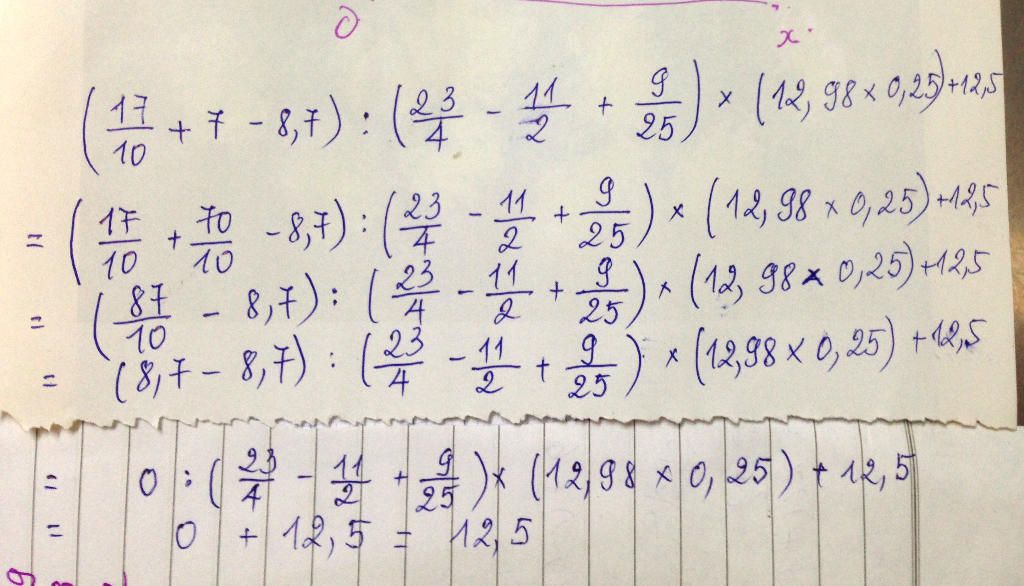 0 x.
(17/10 + 7 - 8,7) : (23/4 - 11/2 + 9/25) × (12,98 × 0,25) + 12,5
= (17/10 + 70/10 - 8,7) : (23/4 - 11/2 + 9/25) × (12,98 × 0,25) + 12,5
= (87/10 - 8,7) : (23/4 - 11/2 + 9/25) × (12,98 × 0,25) + 12,5
= (8,7 - 8,7) : (23/4 - 11/2 + 9/25) × (12,98 × 0,25) + 12,5
= 0 : (23/4 - 11/2 + 9/25) × (12,98 × 0,25) + 12,5
= 0 + 12,5 = 12,5